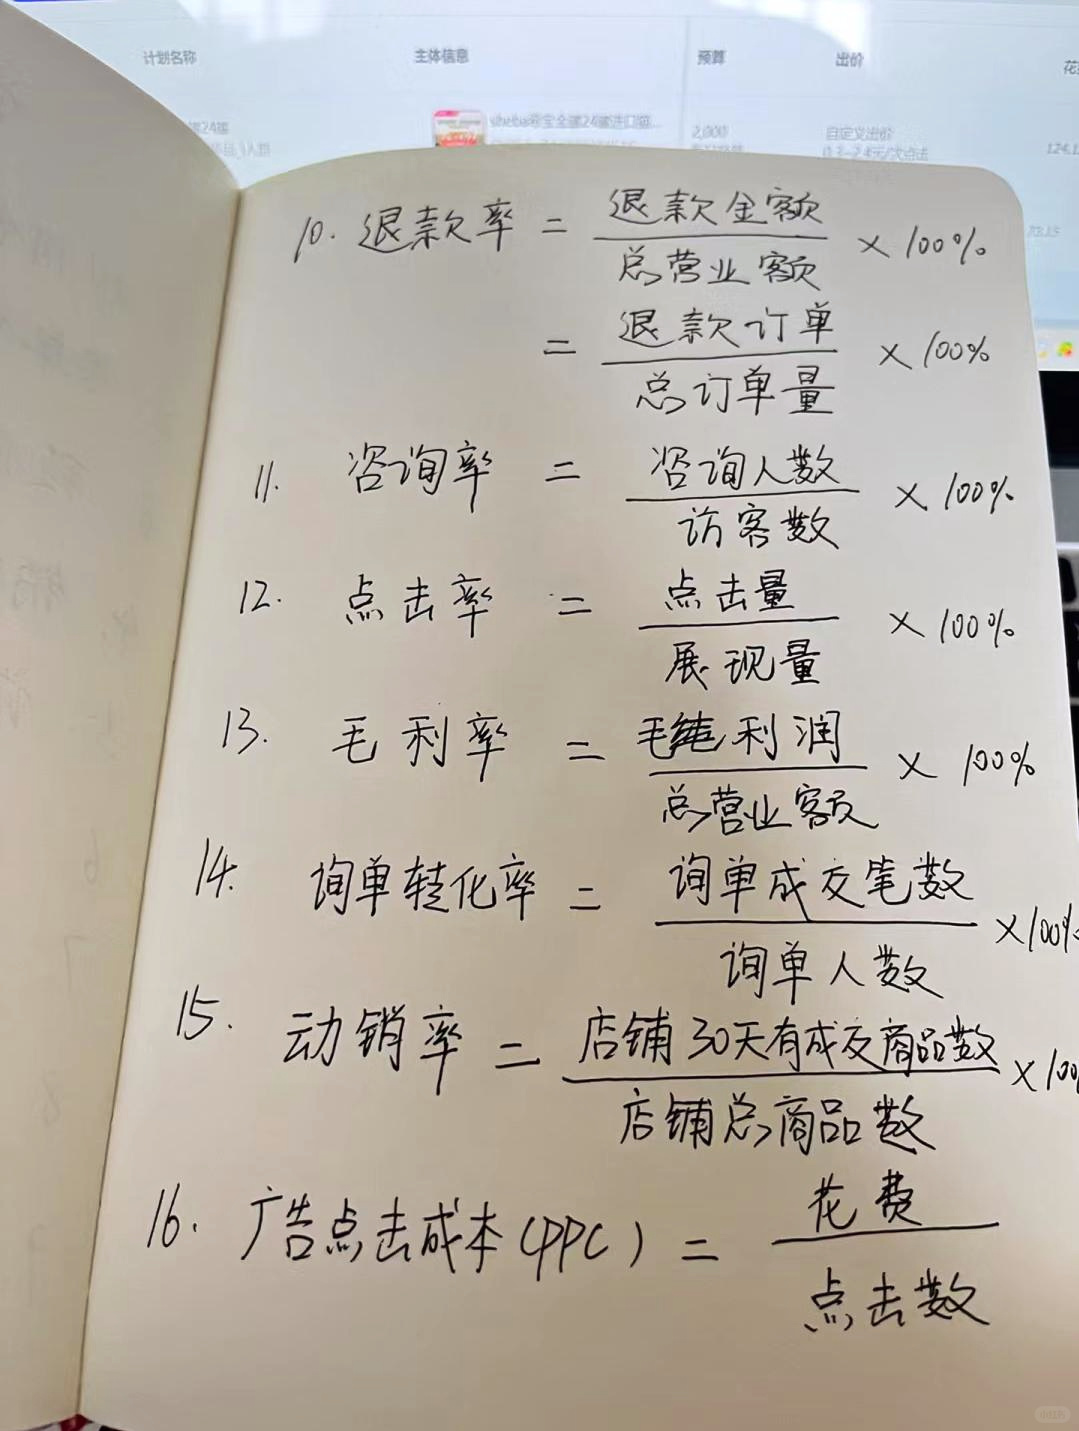 计划名称 主体信息 预算 出价
2,000 自定义出价
10. 退款率 = 退款金额 / 总营业额 × 100%
= 退款订单 / 总订单量 × 100%
11. 咨询率 = 咨询人数 / 访客数 × 100%
12. 点击率 = 点击量 / 展现量 × 100%
13. 毛利率 = 毛利润 / 总营业额 × 100%
14. 询单转化率 = 询单成交笔数 / 询单人数 × 100%
15. 动销率 = 店铺30天有成交商品数 / 店铺总商品数 × 100
16. 广告点击成本(PPC) = 花费 / 点击数